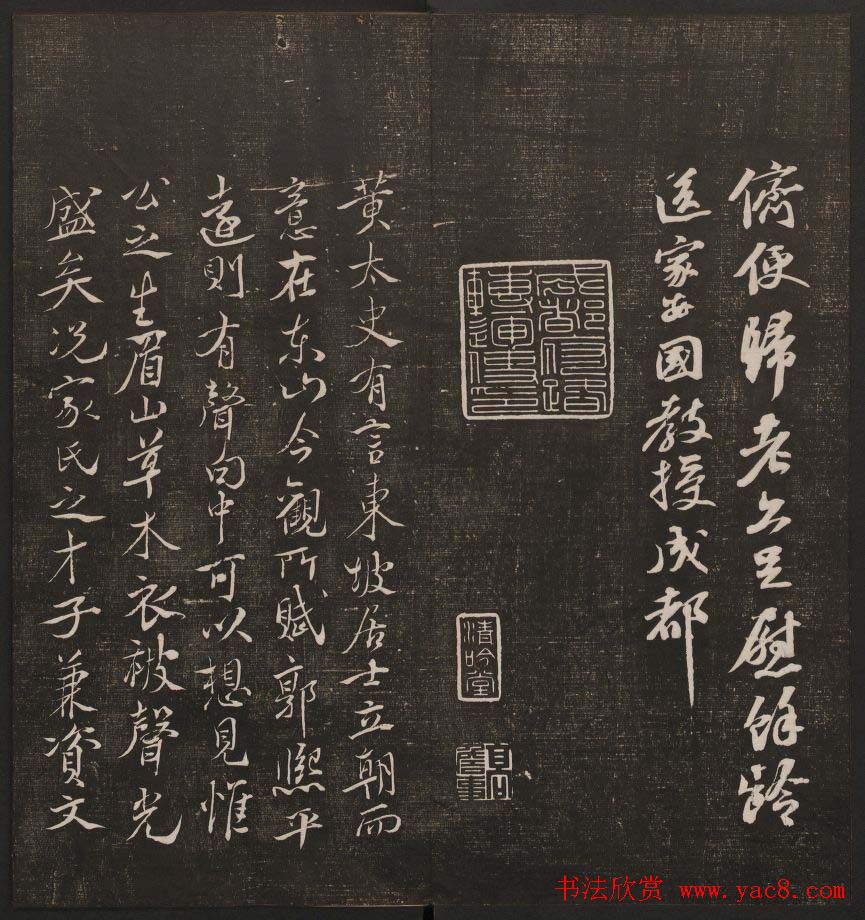 儕便歸老亦足慰餘齡
送家安國教授成都
成都府路
轉運使印
清吟堂
黄太史有言東坡居士立朝而
意在东山今觀所賦郭熙平
遠則有聲句中可以想見惟
公之生眉山草木衣被聲光
盛矣况家氏之才子兼資文
书法欣赏 www.yac8.com